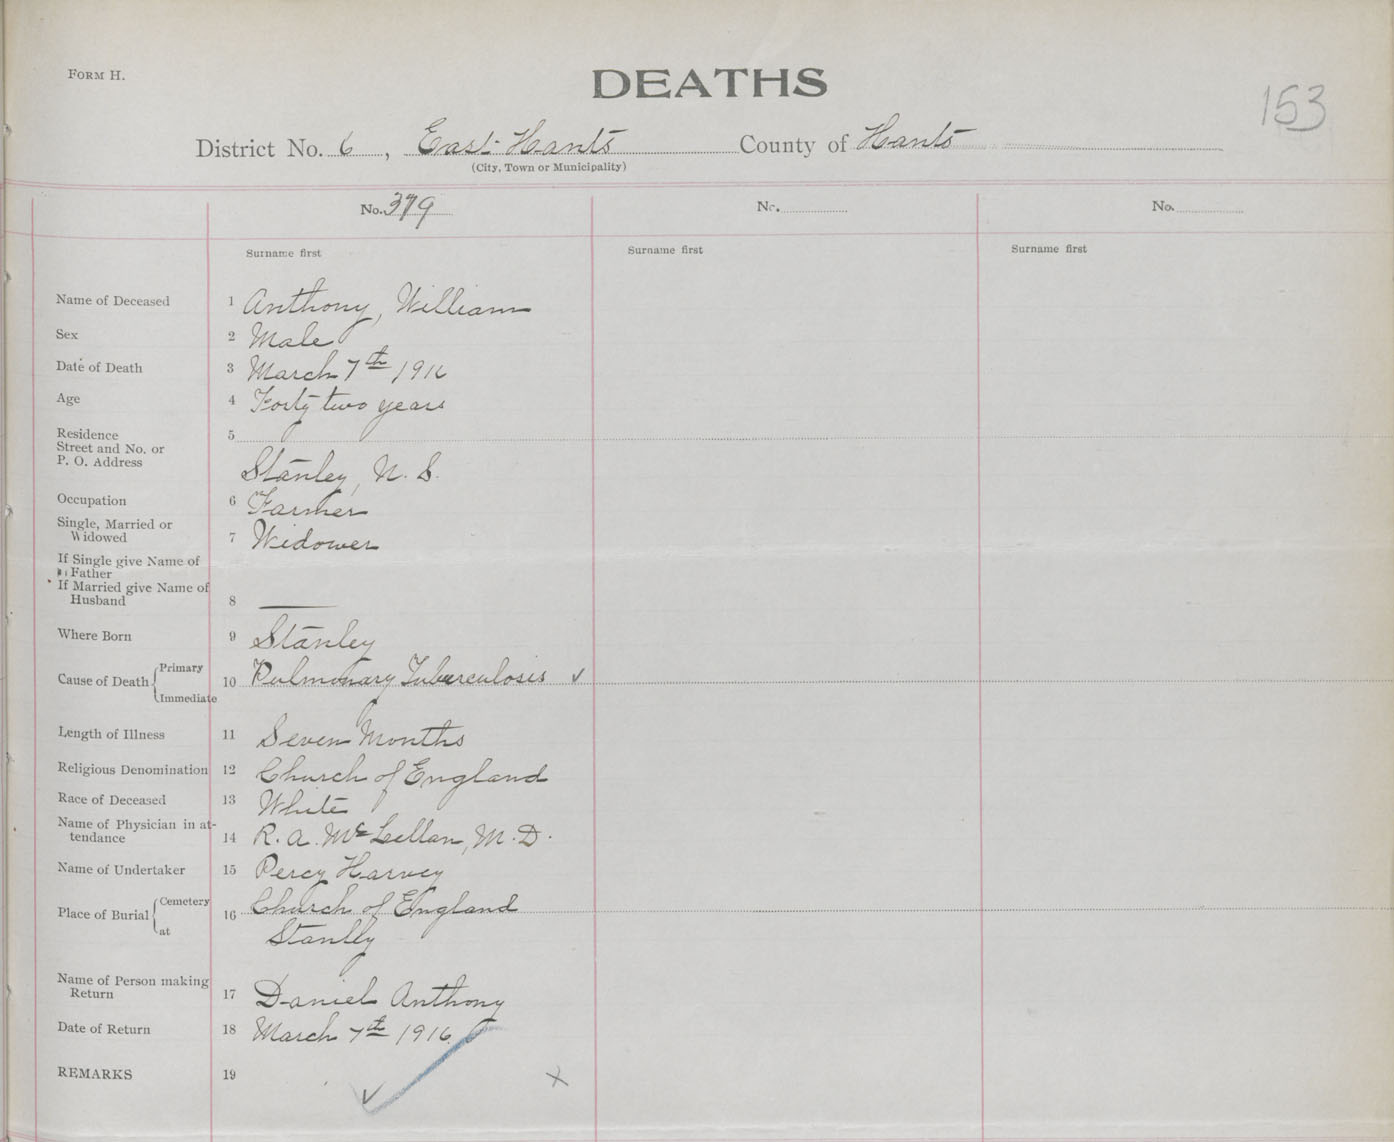 FORM H.
DEATHS
153
District No. 6, East Hants County of Hants
(City, Town or Municipality)
No. 379 No. No.
Surname first Surname first Surname first
Name of Deceased 1 Anthony, William
Sex 2 Male
Date of Death 3 March 7th 1916
Age 4 Forty two years
Residence
Street and No. or
P. O. Address 5
Stanley, N. S.
Occupation 6 Farmer
Single, Married or
Widowed 7 Widower
If Single give Name of
Father
If Married give Name of
Husband 8
Where Born 9 Stanley
Cause of Death { Primary
Immediate 10 Pulmonary Tuberculosis ✓
Length of Illness 11 Seven Months
Religious Denomination 12 Church of England
Race of Deceased 13 White
Name of Physician in at-
tendance 14 R. A. McLellan, M. D.
Name of Undertaker 15 Percy Harvey
Place of Burial { Cemetery
at 16 Church of England
Stanlly
Name of Person making
Return 17 Daniel Anthony
Date of Return 18 March 7th 1916.
REMARKS 19 ✓ x